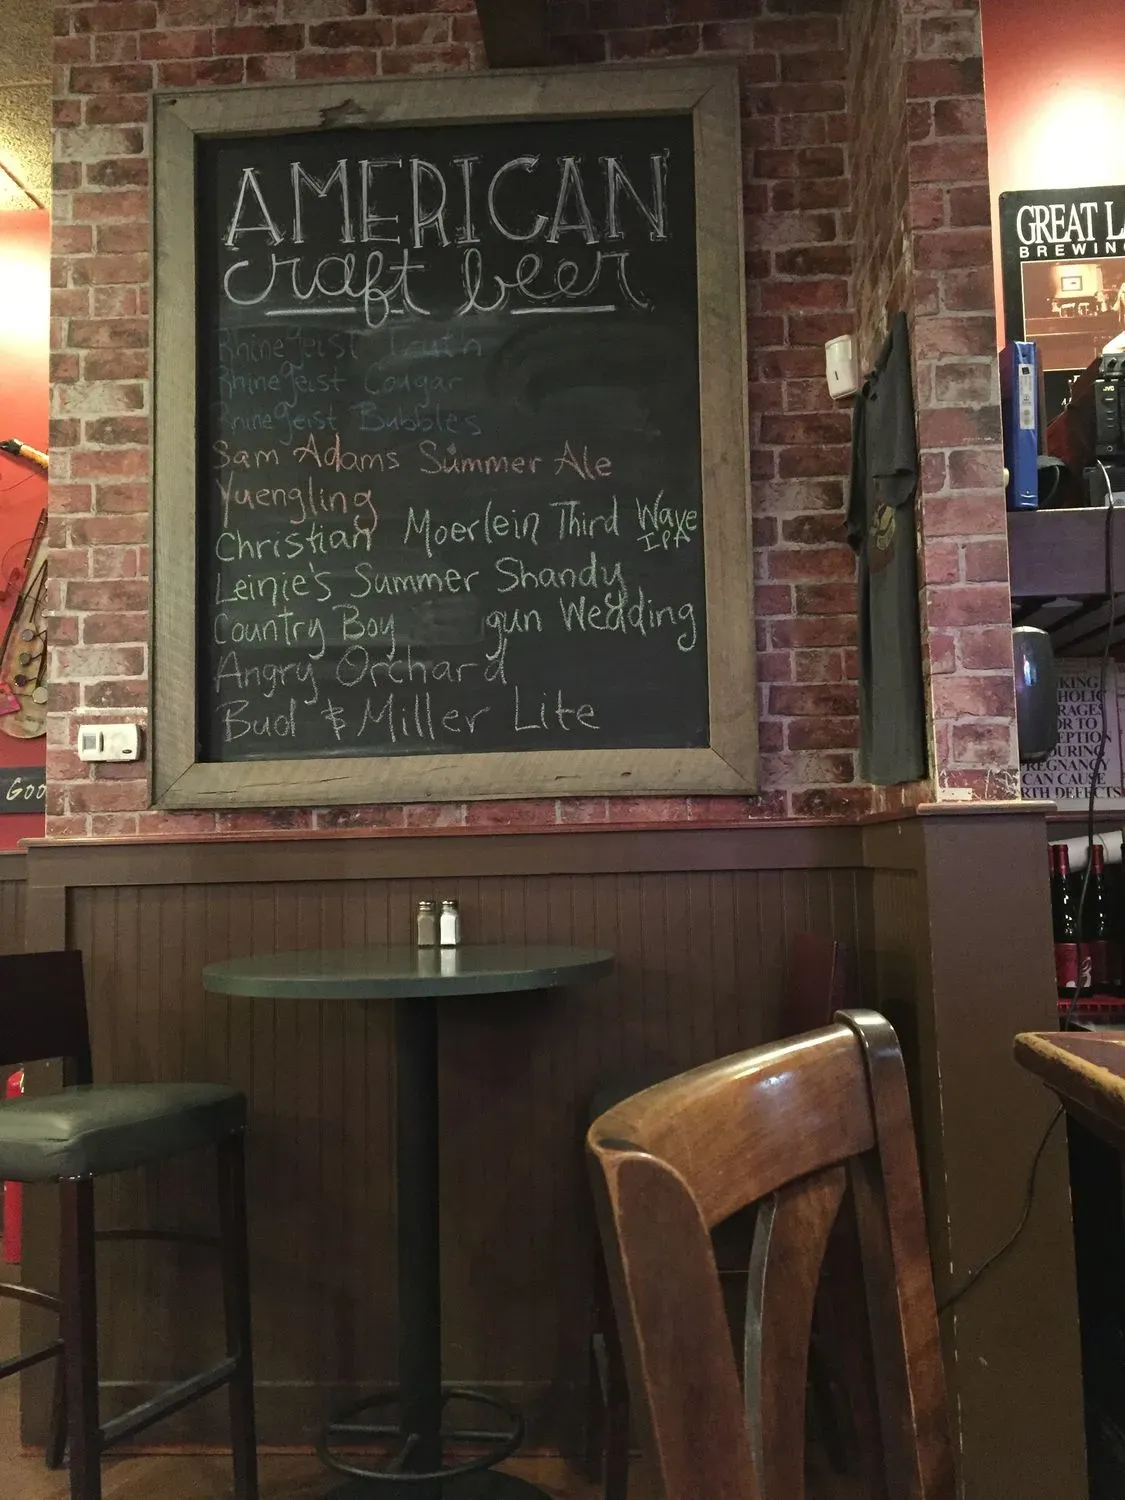 AMERICAN
craft beer
Rhinegeist Truth
Rhinegeist Cougar
Rhinegeist Bubbles
Sam Adams Summer Ale
Yuengling
Christian Moerlein Third Wave
IPA
Leinie's Summer Shandy
Country Boy gun Wedding
Angry Orchard
Bud & Miller Lite
GREAT L
BREWIN
JVC
KING
HOLIC
RAGES
OR TO
EPTION
DURING
PREGNANCY
CAN CAUSE
RTH DEFECTS
GOO